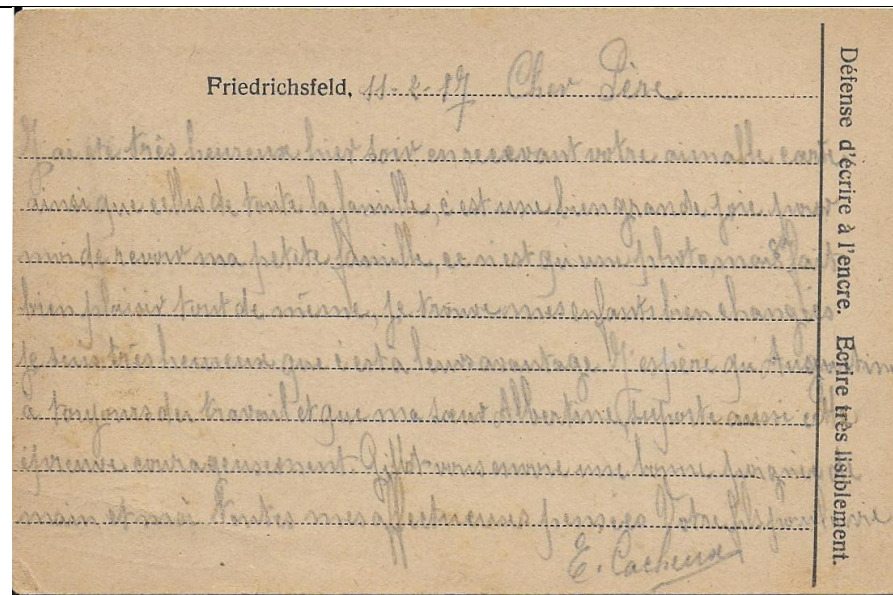 Friedrichsfeld, 11-2-17 Cher Père
J'ai été très heureux hier soir en recevant votre aimable carte
ainsi que celles de toute la famille, c'est une bien grande joie pour
moi de revoir ma petite famille, ce n'est qu'une photo, mais ça fait
bien plaisir tout de même, je trouve mes enfants bien changés
je suis très heureux que c'est a leurs avantage J'espère qu'Augustine
a toujours du travail et que ma sœur Albertine suporte aussi cette
épreuve courageusement. vous envoie une bonne poignée de
main et moi toutes mes affectueuses pensées Votre fils pour la vie
E. Cacheux
Défense d'écrire à l'encre. Ecrire très lisiblement.